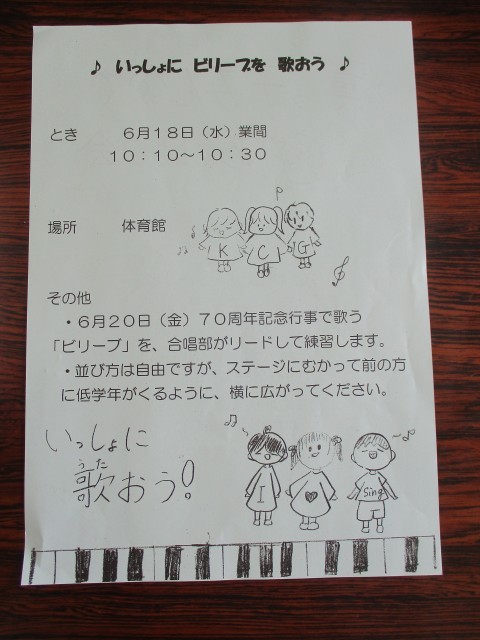 ♪ いっしょに ビリーブを 歌おう ♪
とき ６月１８日（水）業間
１０：１０～１０：３０
場所 体育館
K C G
その他
・６月２０日（金）７０周年記念行事で歌う
「ビリーブ」を、合唱部がリードして練習します。
・並び方は自由ですが、ステージにむかって前の方
に低学年がくるように、横に広がってください。
いっしょに
うた
歌おう!
I ♥ Sing